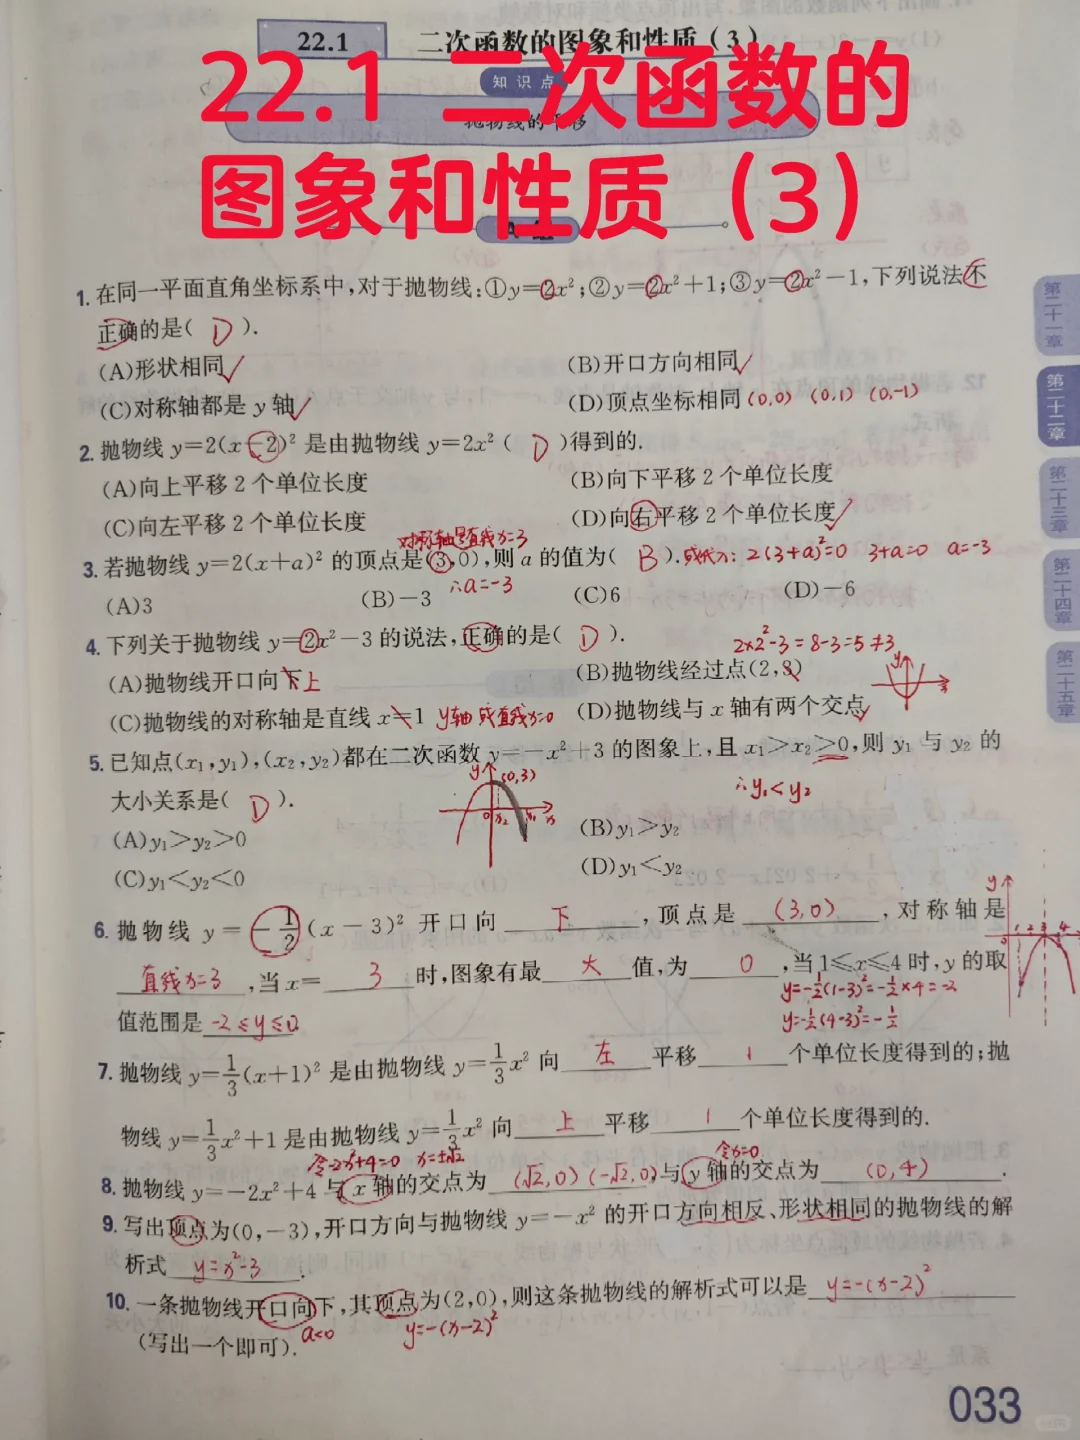 22.1 二次函数的图象和性质(3)
知识点
22.1 二次函数的
图象和性质（3）
1. 在同一平面直角坐标系中,对于抛物线:①y=2x²;②y=2x²+1;③y=2x²-1,下列说法不
正确的是( D ).
(A)形状相同✓ (B)开口方向相同✓
(C)对称轴都是 y 轴✓ (D)顶点坐标相同 (0,0) (0,1) (0,-1)
2. 抛物线 y=2(x-2)² 是由抛物线 y=2x² ( D )得到的.
(A)向上平移 2 个单位长度 (B)向下平移 2 个单位长度
(C)向左平移 2 个单位长度 (D)向右平移 2 个单位长度✓
对称轴是直线x=3
3. 若抛物线 y=2(x+a)² 的顶点是(3,0),则 a 的值为( B ). 或代入: 2(3+a)²=0 3+a=0 a=-3
∴a=-3
(A)3 (B)-3 (C)6 (D)-6
4. 下列关于抛物线 y=2x²-3 的说法,正确的是( D ).
2×2²-3=8-3=5≠3
(A)抛物线开口向下 上 (B)抛物线经过点(2,3) y x
(C)抛物线的对称轴是直线 x=1 y轴 或直线x=0 (D)抛物线与 x 轴有两个交点✓
5. 已知点(x₁,y₁),(x₂,y₂)都在二次函数 y=-x²+3 的图象上,且 x₁>x₂≥0,则 y₁ 与 y₂ 的
大小关系是( D ). y (0,3) ∴y₁<y₂
0 x₂ x₁ x
(A)y₁>y₂>0 (B)y₁>y₂
(C)y₁<y₂<0 (D)y₁<y₂
6. 抛物线 y=-1/2(x-3)² 开口向 下 ,顶点是 (3,0) ,对称轴是
直线x=3 ,当 x= 3 时,图象有最 大 值,为 0 ,当 1≤x≤4 时,y 的取
y=-1/2(1-3)²=-1/2×4=-2
值范围是 -2≤y≤0
y=-1/2(4-3)²=-1/2
y 0 1 2 3 4
7. 抛物线 y=1/3(x+1)² 是由抛物线 y=1/3x² 向 左 平移 1 个单位长度得到的;抛
物线 y=1/3x²+1 是由抛物线 y=1/3x² 向 上 平移 1 个单位长度得到的.
令-2x²+4=0 x=±√2 令x=0
8. 抛物线 y=-2x²+4 与 x 轴的交点为 (√2,0) (-√2,0) ,与 y 轴的交点为 (0,4) .
9. 写出顶点为(0,-3),开口方向与抛物线 y=-x² 的开口方向相反、形状相同的抛物线的解
析式 y=x²-3 .
10. 一条抛物线开口向下,其顶点为(2,0),则这条抛物线的解析式可以是 y=-(x-2)²
a<0 y=-(x-2)²
(写出一个即可).
第二十一章
第二十二章
第二十三章
第二十四章
第二十五章
033